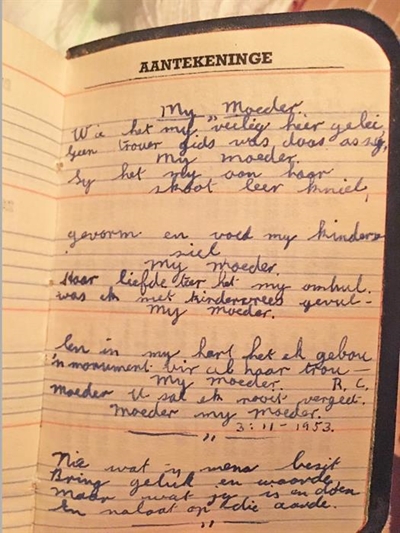 AANTEKENINGE
My Moeder.
Wie het my veilig hier gelei,
Geen trouer gids was daar as sy,
My moeder.
Sy het my aan haar
skoot leer kniel,
gevorm en voed my kinder
siel
My moeder.
Haar liefde teer het my omhul.
was ek met kindervrees gevul -
My moeder.
En in my hart het ek gebou
'n monument vir al haar trou -
My moeder. R. C.
Moeder U sal ek nooit vergeet.
Moeder my moeder.
3-11-1953.
Nie wat 'n mens besit
Bring geluk en waarde
Maar wat jy is en doen
En nalaat op die aarde.